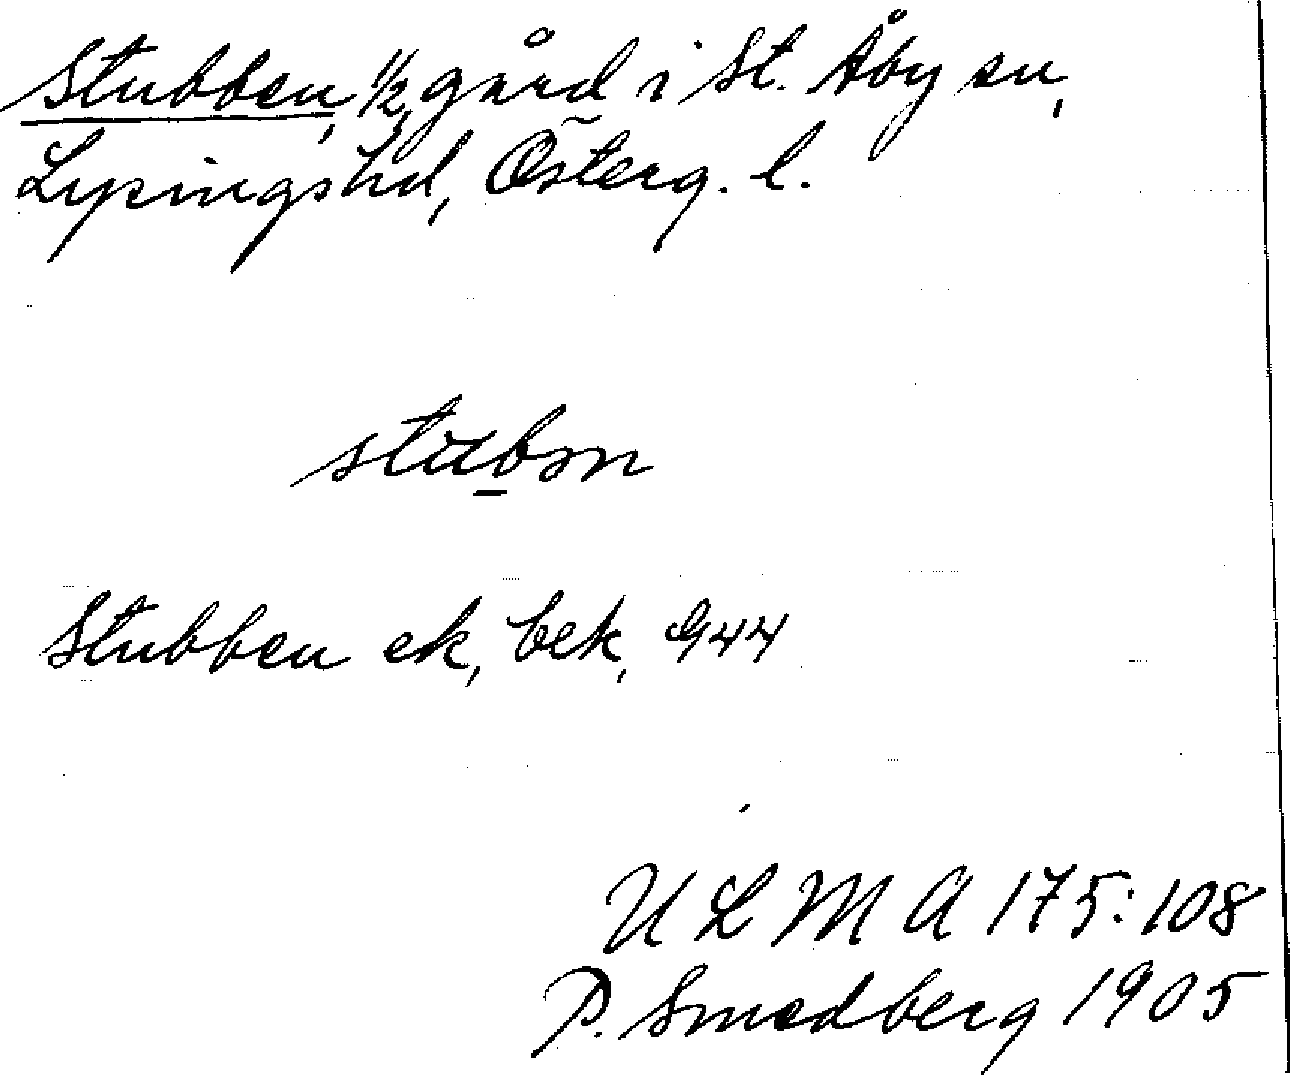 Stubben, 1/2 gård i St. Åby sn,
Lysingshd, Österg. l.
stubm
Stubben ek, bek, G44
U L M A 175:108
P. Smedberg 1905